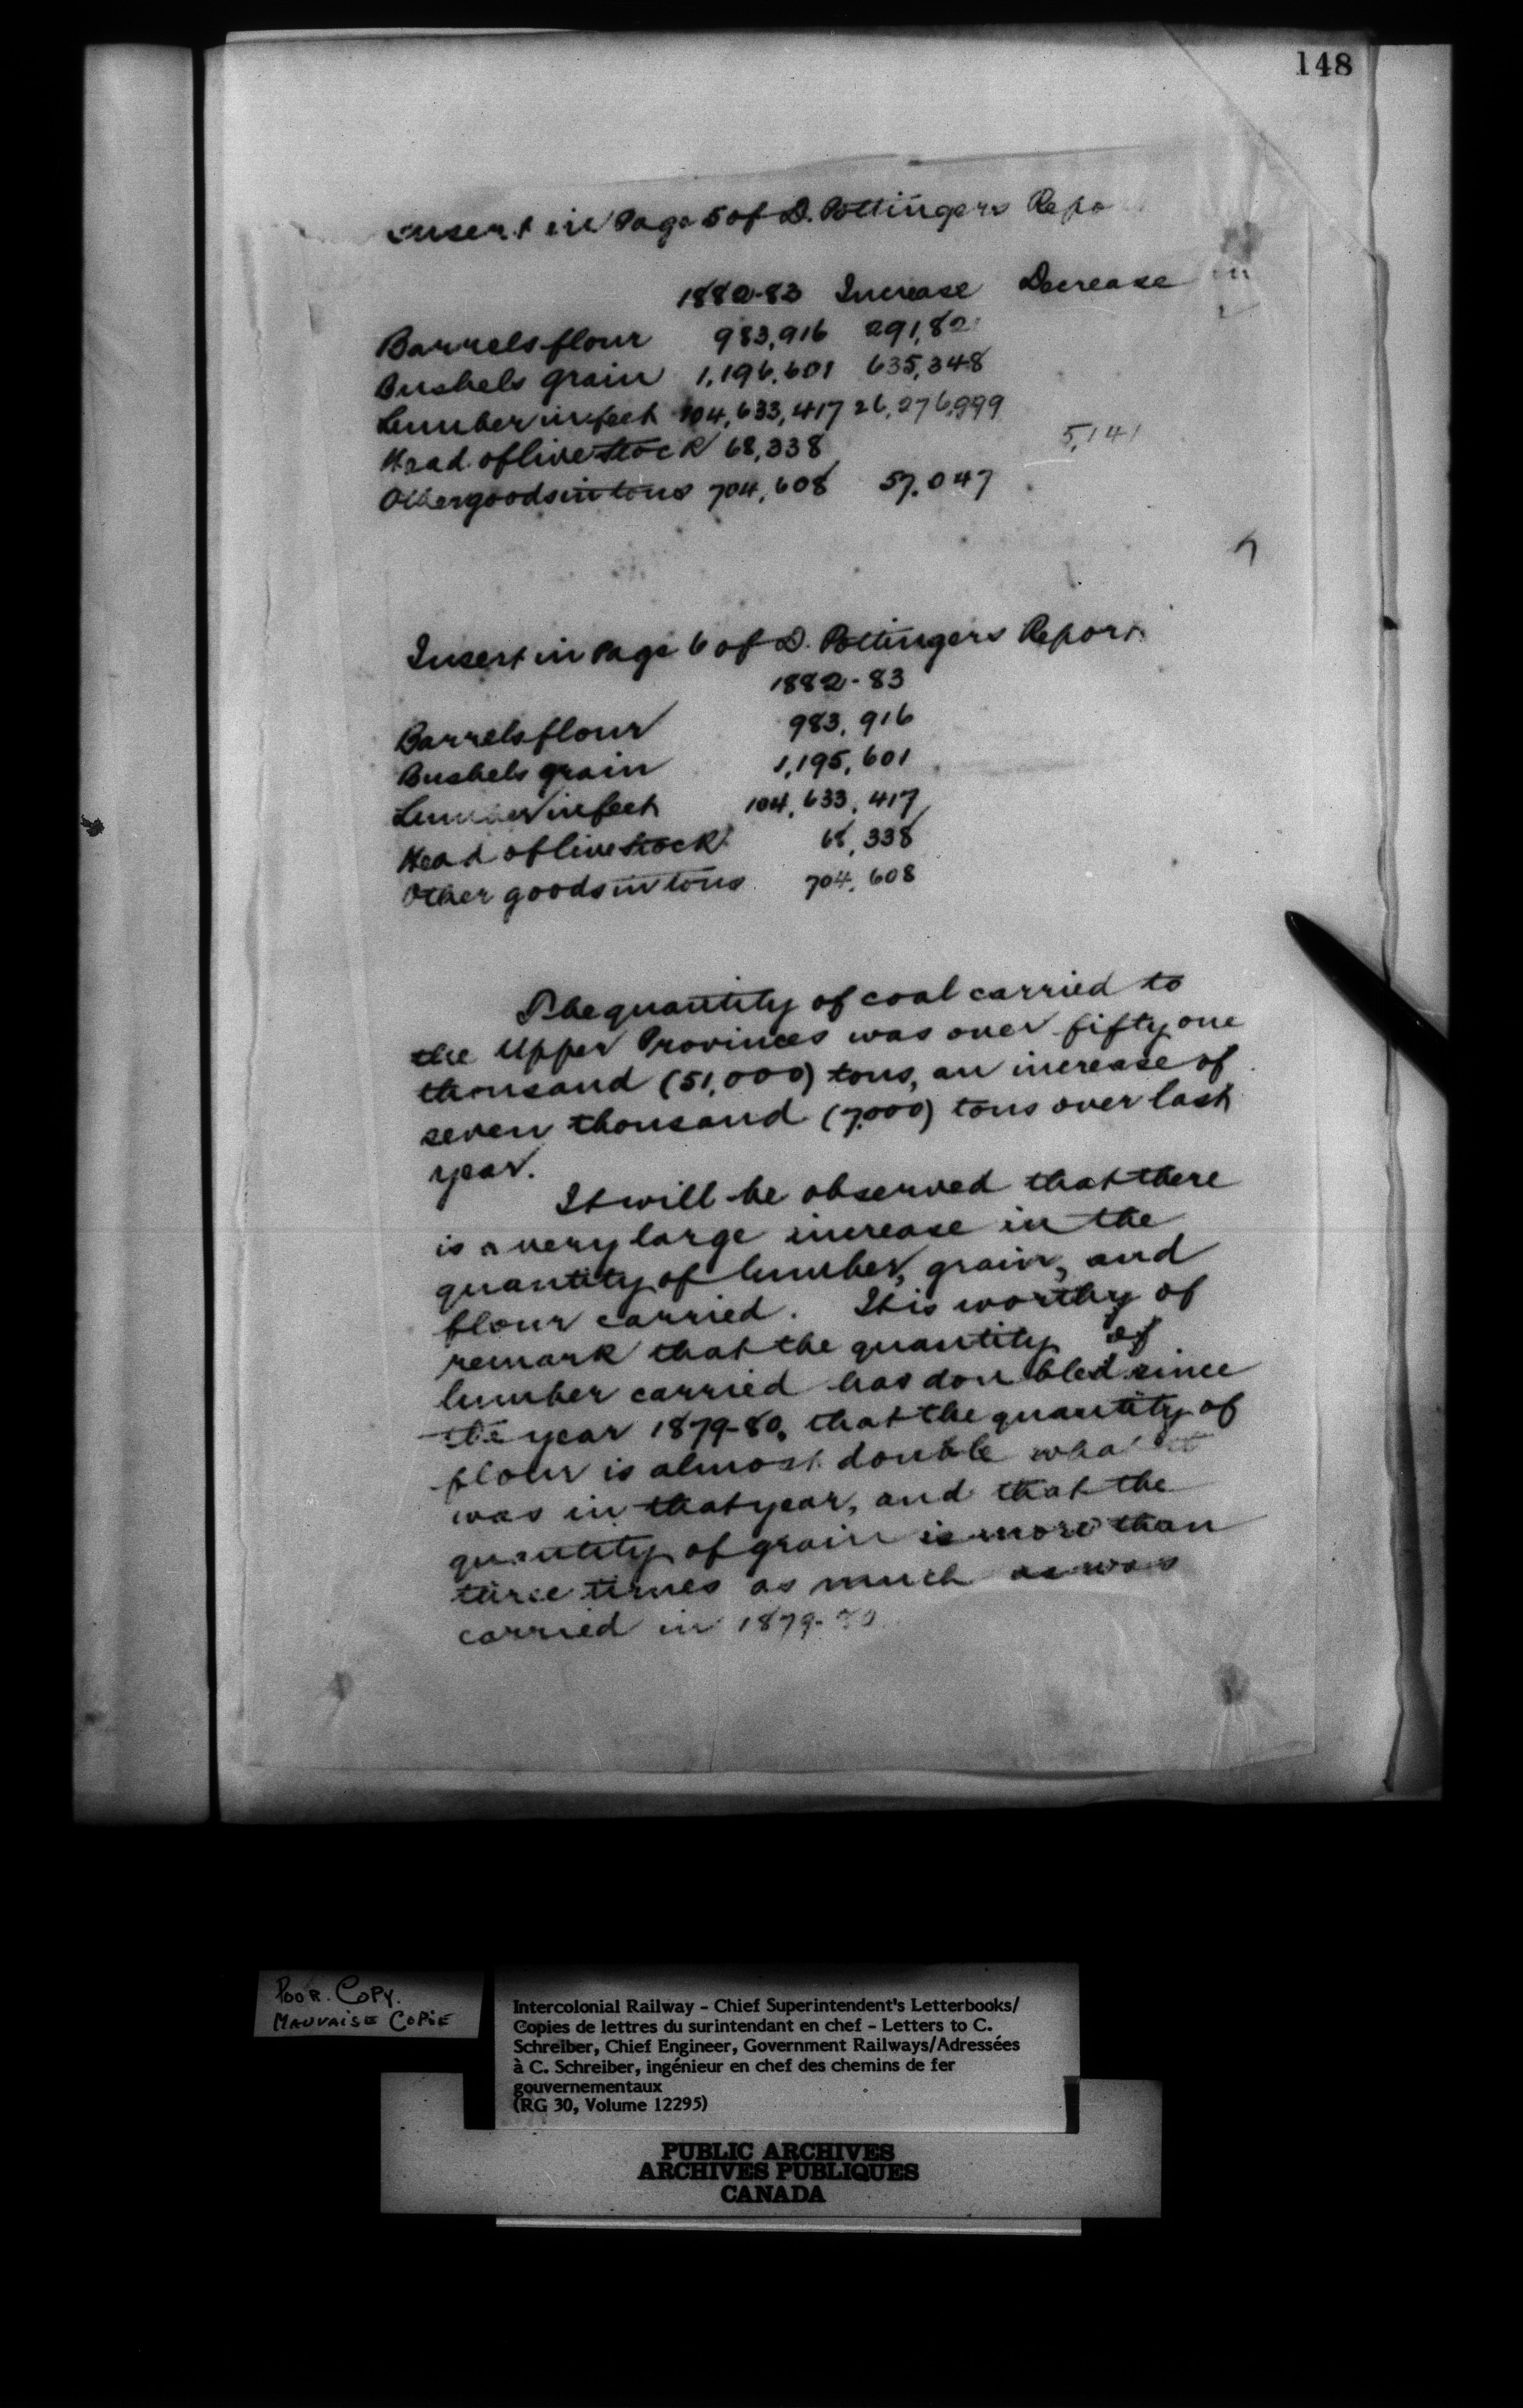 148
Insert in Page 5 of D. Pottingers Repo
1882-83 Increase Decrease
Barrels flour 983,916 291,82
Bushels grain 1,196,601 635,348
Lumber in feet 104,633,417 26,276,999
Head of live stock 68,338 5,141
Other goods in tons 704,608 57,047
Insert in Page 6 of D. Pottingers Report
1882-83
Barrels flour 983,916
Bushels grain 1,195,601
Lumber in feet 104,633,417
Head of live stock 68,338
Other goods in tons 704,608
The quantity of coal carried to
the Upper Provinces was over fifty one
thousand (51,000) tons, an increase of
seven thousand (7,000) tons over last
year.
It will be observed that there
is a very large increase in the
quantity of lumber, grain, and
flour carried. It is worthy of
remark that the quantity of
lumber carried has doubled since
the year 1879-80, that the quantity of
flour is almost double what it
was in that year, and that the
quantity of grain is more than
three times as much as was
carried in 1879-80
POOR. COPY.
MAUVAISE COPIE
Intercolonial Railway - Chief Superintendent's Letterbooks/
Copies de lettres du surintendant en chef - Letters to C.
Schreiber, Chief Engineer, Government Railways/Adressées
à C. Schreiber, ingénieur en chef des chemins de fer
gouvernementaux
(RG 30, Volume 12295)
PUBLIC ARCHIVES
ARCHIVES PUBLIQUES
CANADA